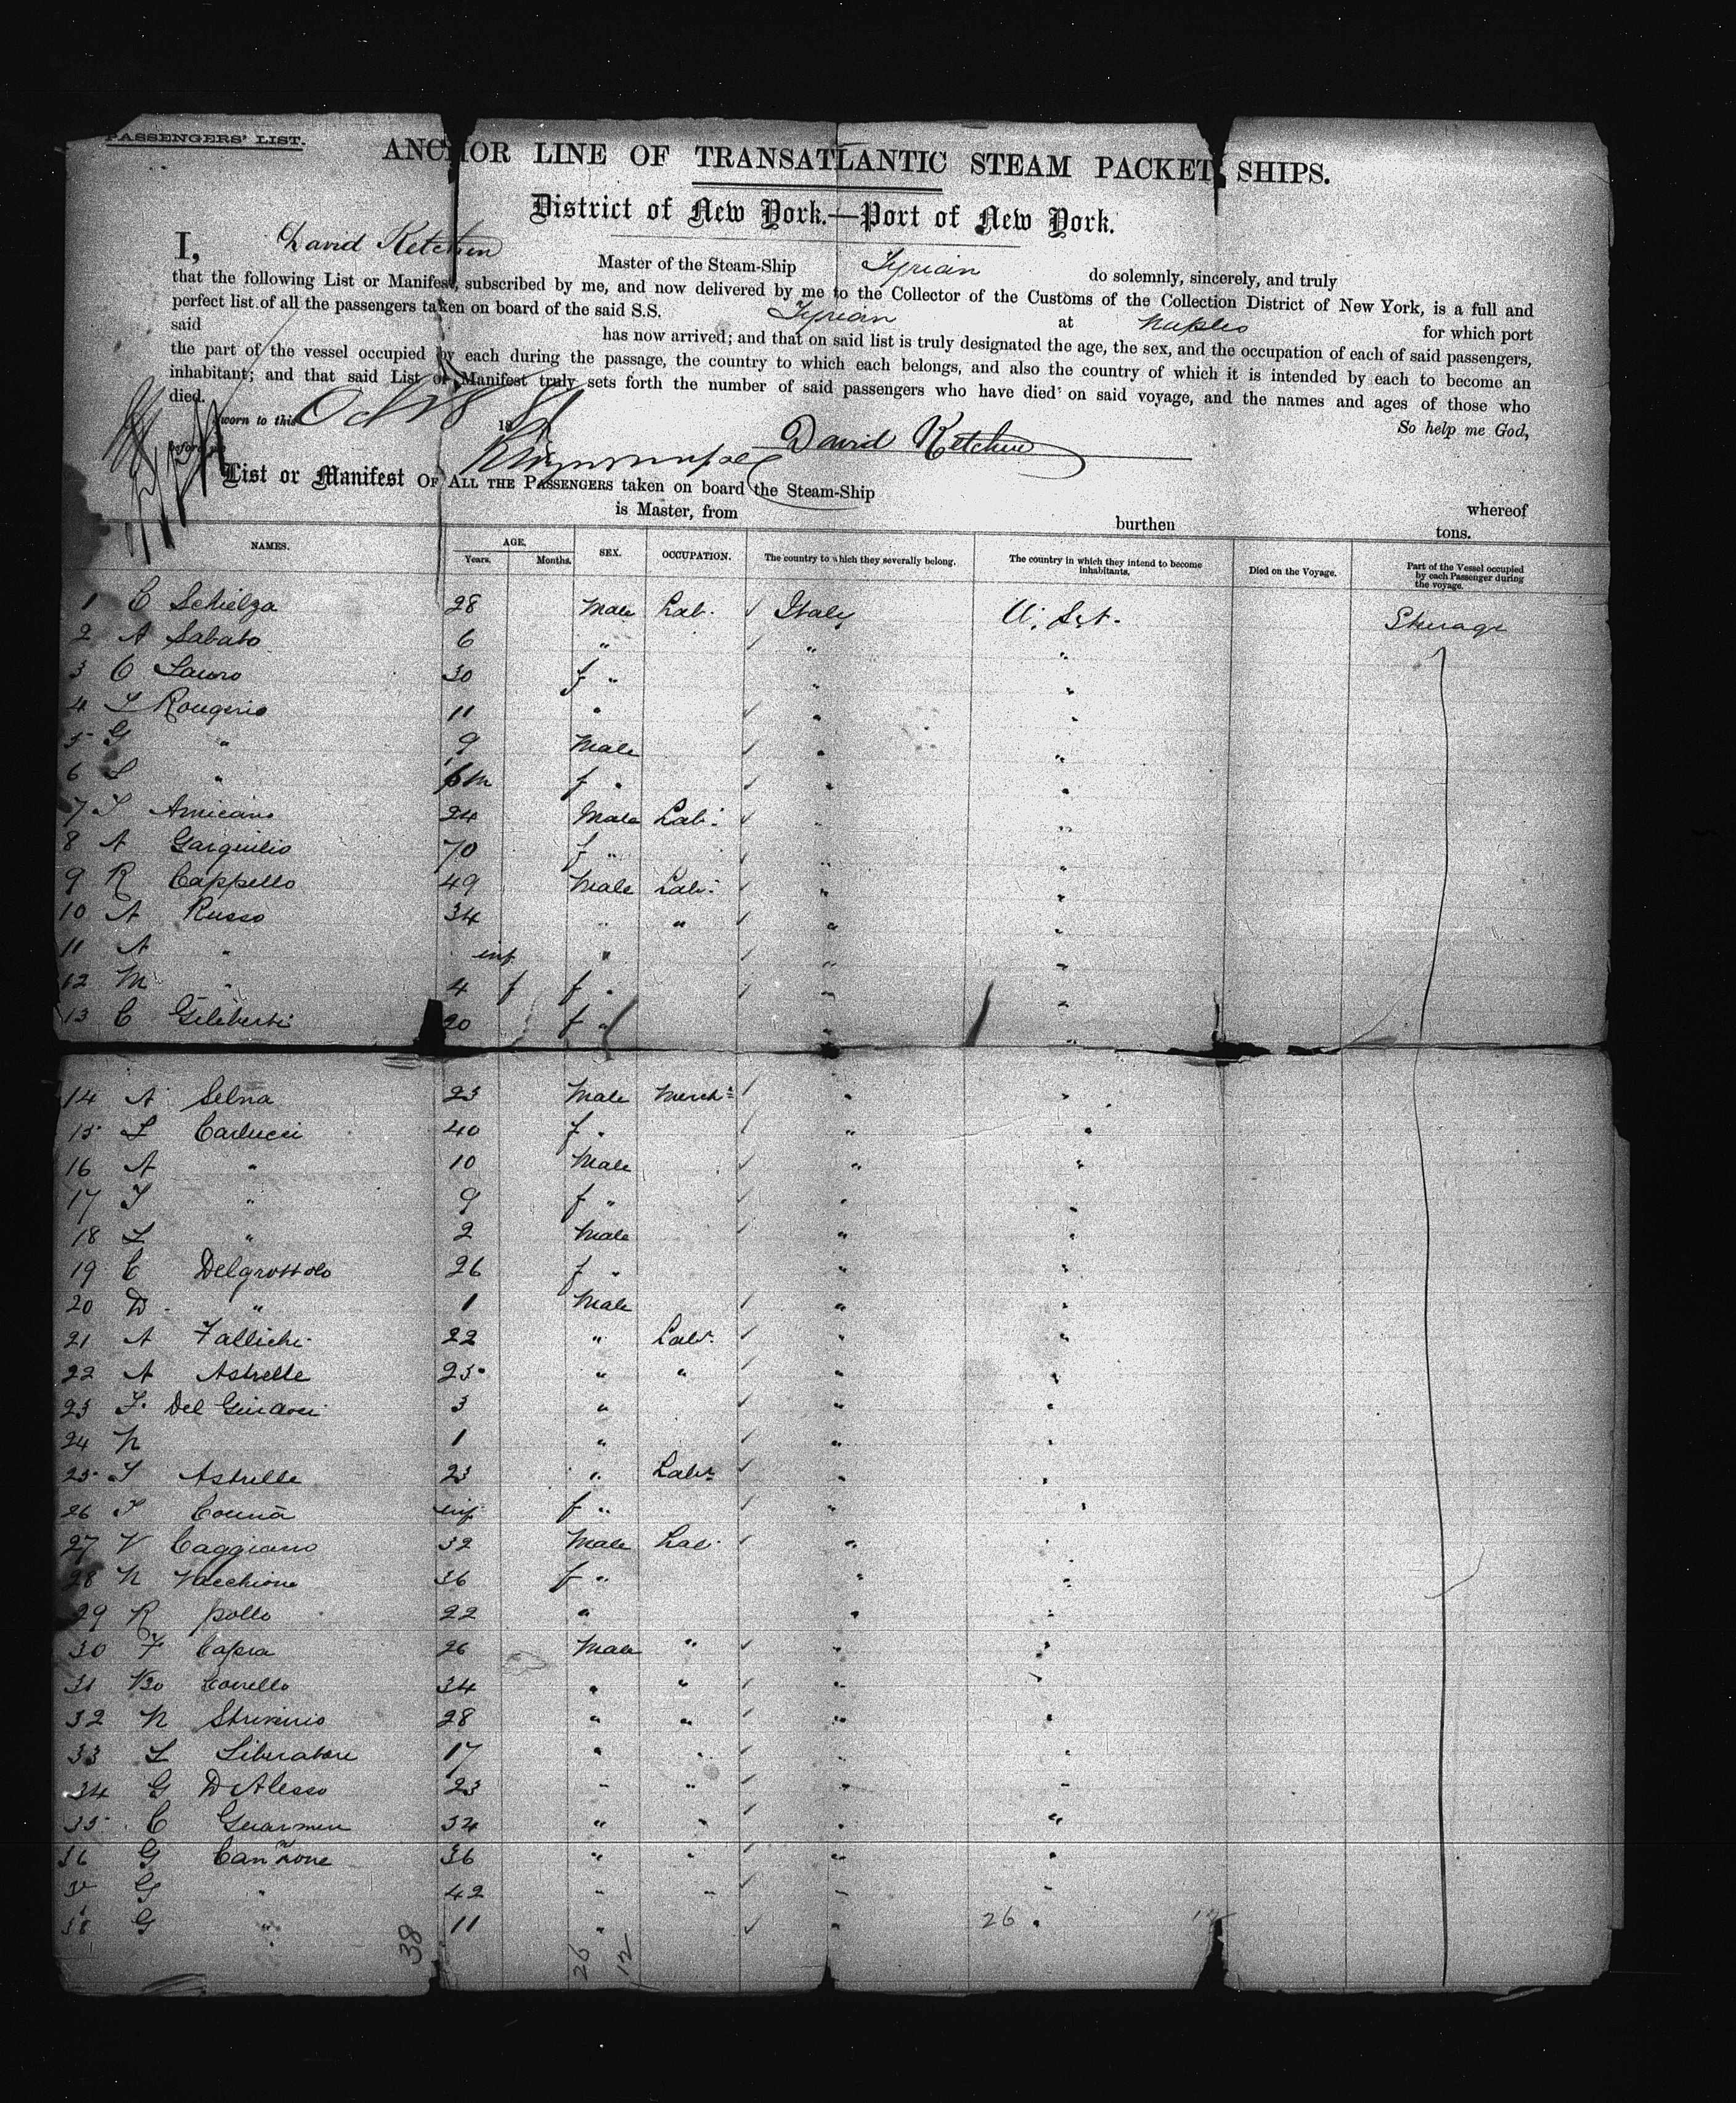 PASSENGERS' LIST.
ANCHOR LINE OF TRANSATLANTIC STEAM PACKET SHIPS.
District of New York.—Port of New York.
I, David Ketchen Master of the Steam-Ship Tyrian do solemnly, sincerely, and truly
that the following List or Manifest, subscribed by me, and now delivered by me to the Collector of the Customs of the Collection District of New York, is a full and
perfect list of all the passengers taken on board of the said S.S. Tyrian at Naples for which port
said has now arrived; and that on said list is truly designated the age, the sex, and the occupation of each of said passengers,
the part of the vessel occupied by each during the passage, the country to which each belongs, and also the country of which it is intended by each to become an
inhabitant; and that said List or Manifest truly sets forth the number of said passengers who have died on said voyage, and the names and ages of those who
died. So help me God,
Sworn to this Oct 18 1881 David Ketchen
before
List or Manifest OF ALL THE PASSENGERS taken on board the Steam-Ship whereof
is Master, from burthen tons.
NAMES. AGE. Years. Months. SEX. OCCUPATION. The country to which they severally belong. The country in which they intend to become inhabitants. Died on the Voyage. Part of the Vessel occupied by each Passenger during the voyage.
1 C Schelza 28 Male Lab. ✓ Italy U. St. Steerage
2 A Sabato 6 " ✓ " "
3 C Lauro 30 f " " "
4 Rougerio 11 " ✓ " "
5 G " 9 Male ✓ " "
6 L " 6m f " ✓ " "
7 Amicano 24 Male Lab. ✓ " "
8 A Garguilio 70 f " ✓ " "
9 R Cappello 49 Male Lab. ✓ " "
10 A Russo 34 " " ✓ " "
11 A " inf " ✓ " "
12 M " 4 f f " ✓ " "
13 C Giliberti 20 f " " "
14 A Selna 23 Male Merch ✓ " "
15 L Carlucci 40 f " ✓ " "
16 A " 10 Male ✓ " "
17 " 9 f " ✓ " "
18 L " 2 Male ✓ " "
19 C 26 f " " "
20 D " 1 Male ✓ " "
21 A Fallichi 22 " Labr ✓ " "
22 A Astrelle 25 " " ✓ " "
23 F. Del 3 " ✓ " "
24 N 1 " ✓ " "
25 Astrelle 23 " Labr ✓ " "
26 inf f " ✓ " "
27 V Caggiano 32 Male Lab ✓ " "
28 N Vacchione 36 f " " "
29 R pollo 22 " " "
30 F Capra 26 Male " ✓ " "
31 Vzo 34 " " ✓ " "
32 N 28 " " ✓ " "
33 L Liberatore 17 " " ✓ " "
34 G D Alesso 23 " " ✓ " "
35 C 34 " " ✓ " "
36 G Canzone 36 " " ✓ " "
37 G " 42 " " ✓ " "
38 G " 11 " ✓ " 26 " 12
38 26 12